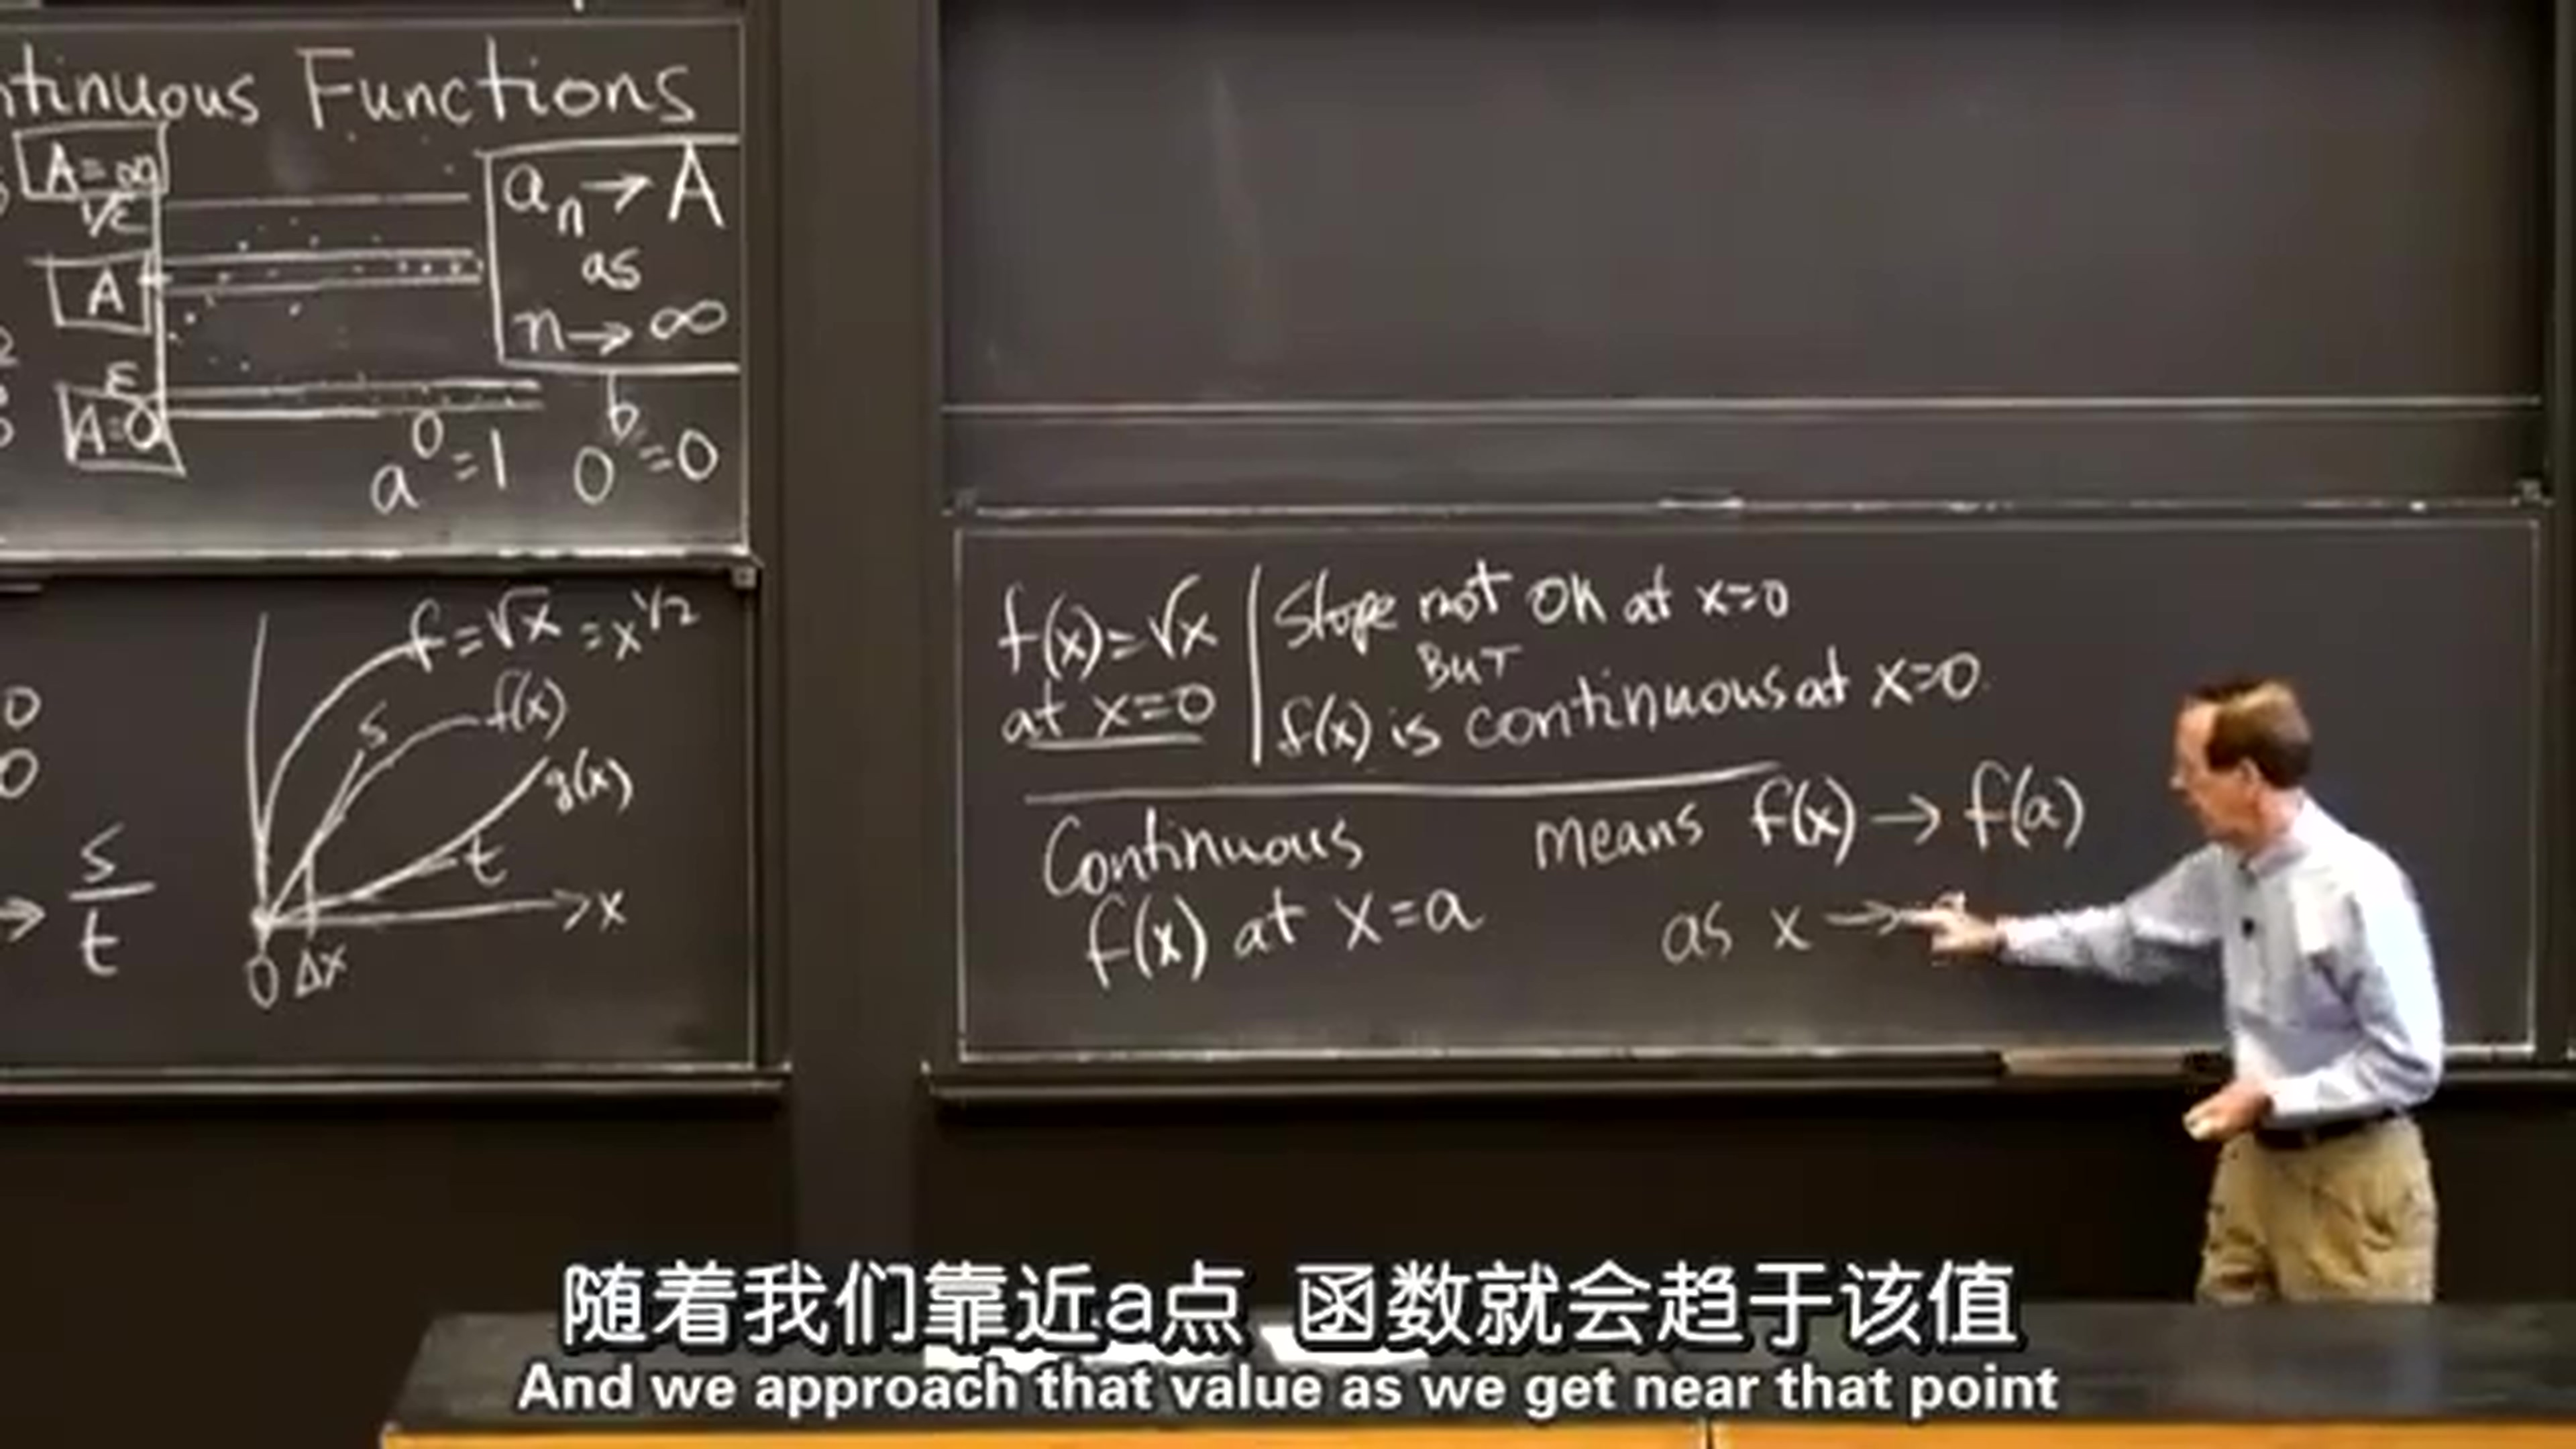 ntinuous Functions
A=∞
1/ε
A
ε
A=0
aₙ→A
as
n→∞
a⁰=1 0ᵇ=0
0
0
→ s/t
f=√x=x^1/2
f(x)
s
g(x)
t
x
0 Δx
f(x)=√x
at x=0
Slope not OK at x=0
BUT
f(x) is continuous at x=0
Continuous means f(x)→f(a)
f(x) at x=a as x→
随着我们靠近a点 函数就会趋于该值
And we approach that value as we get near that point